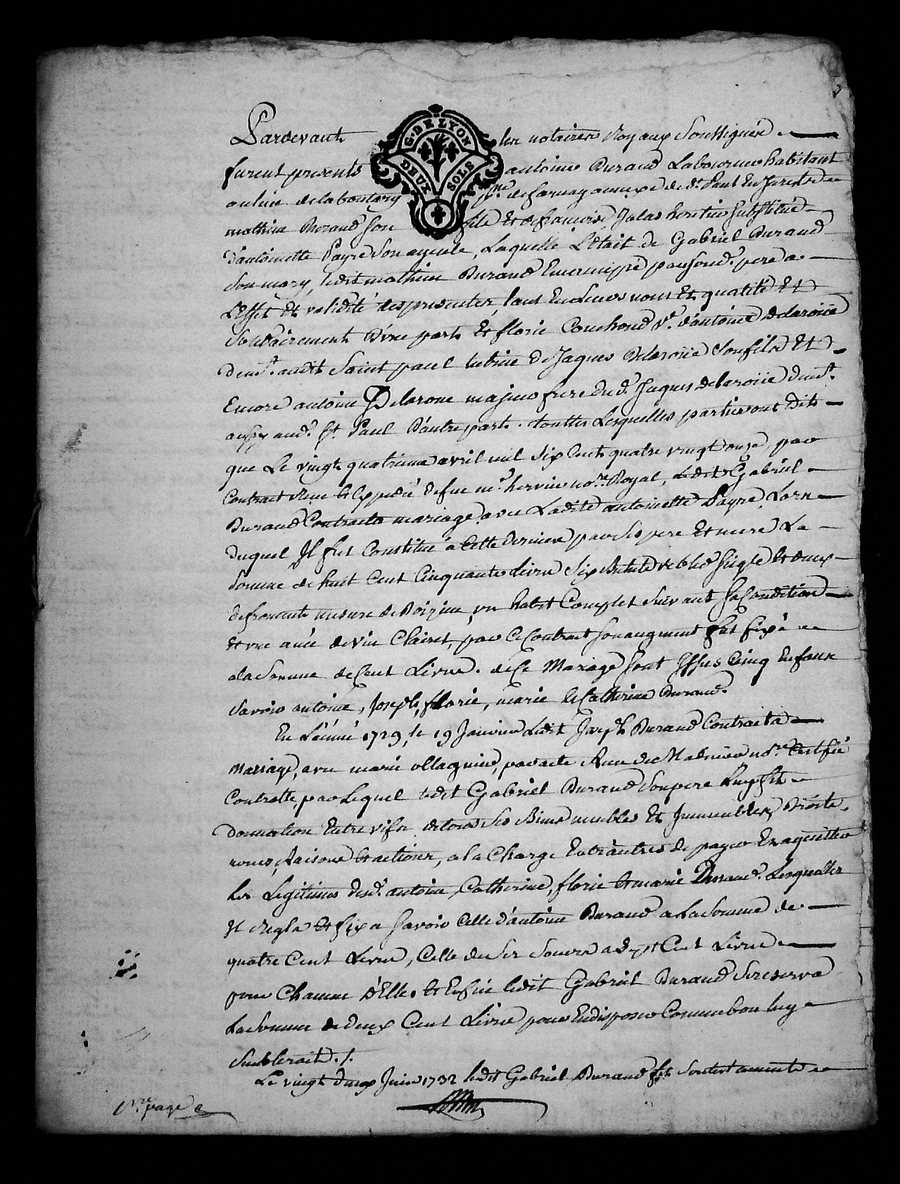 Pardevant les notaires Royaux Soussignés
G. DE LYON
DEUX SOLS
furent présents antoine Durand Laboureur habitant
au lieu de la bourlary psse de farnay annexe de St Paul En Jarest Et
mathieu Durand Son fils Et de françoise Jalas heritier Substitué
d'antoinette Payre Son ayeule, Laquelle L'était de Gabriel Durand
Son mary, ledit mathieu Durand Emancipé par Sond. pere a
L'effet Et validité des presentes, tant En Leurs noms Et qualité Et
Solidairement D'une part Et florie Couchoud Ve d'antoine Delaroüe
demt. audit Saint paul tutrice de Jaques Delaroüe Son fils Et
Encore antoine Delaroüe majeur frere dud. Jaques delaroüe demt.
aussy aud. St. Paul D'autre part. touttes Lesquelles parties ont dit
que Le vingt quatrieme avril mil six Cent quatre vingt onze par
Contract reçu Et Expedié de feu me. hervier nore Royal, Ledit Gabriel
Durand Contracta mariage avec Ladite antoinette Payre, Lors
duquel Il fut Constitué a Cette derniere par Ses pere Et mere La
Somme de huit Cent Cinquante livres Six bichets de bled Siegle Et deux
de froment mesure de , un habit Complet Suivant Sa Condition
Et une anée de vin Clairet, par Ce Contract Son augment fut fixé
a la Somme de Cent Livres. de Ce Mariage Sont Issus Cinq Enfans
Savoir antoine, Joseph, florie, marie Et Catherine Durand.
En L'année 1729, le 19 Janvier Ledit Joseph Durand Contracta
Mariage, avec marie ollagnier, par acte Reçu de nore Certifié
Controllé, par Lequel ledit Gabriel Durand Son pere Luy fit
donnation Entre vifs de tous Ses Biens meubles Et Immeubles, Droits,
noms, Raisons Et actions, a la Charge Entr'autres de payer Et acquitter
les Legitimes desd. antoine, Catherine, florie Et marie Durand. Lesquelles
Il Regla Et fixa Savoir Celle d'antoine Durand a La Somme de
quatre Cent Livres, Celle de Ses Soeurs a Sept Cent Livres
pour Chacune D'Elles Et Enfin ledit Gabriel Durand Se reserva
La Somme de deux Cent Livres pour En disposer Comme bon luy
Sembleroit ./.
Le vingt deux Juin 1732 ledit Gabriel Durand fit Son testament
1re page